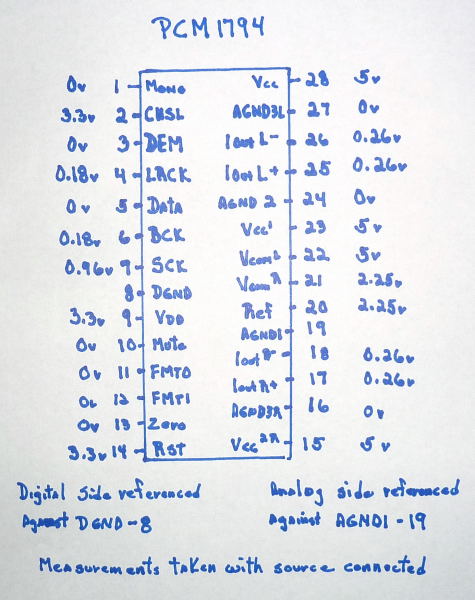 PCM1794
0v 1 Mono Vcc 28 5v
3.3v 2 CHSL AGND3L 27 0v
0v 3 DEM Iout L- 26 0.26v
0.18v 4 LRCK Iout L+ 25 0.26v
0v 5 Data AGND 2 24 0v
0.18v 6 BCK Vcc1 23 5v
0.96v 7 SCK VcomL 22 5v
8 DGND VcomR 21 2.25v
3.3v 9 VDD Ref 20 2.25v
0v 10 Mute AGND1 19
0v 11 FMT0 Iout R- 18 0.26v
0v 12 FMT1 Iout R+ 17 0.26v
0v 13 Zero AGND3R 16 0v
3.3v 14 Rst Vcc2R 15 5v
Digital Side referenced
Against DGND-8
Analog side referenced
Against AGND1-19
Measurements taken with source connected